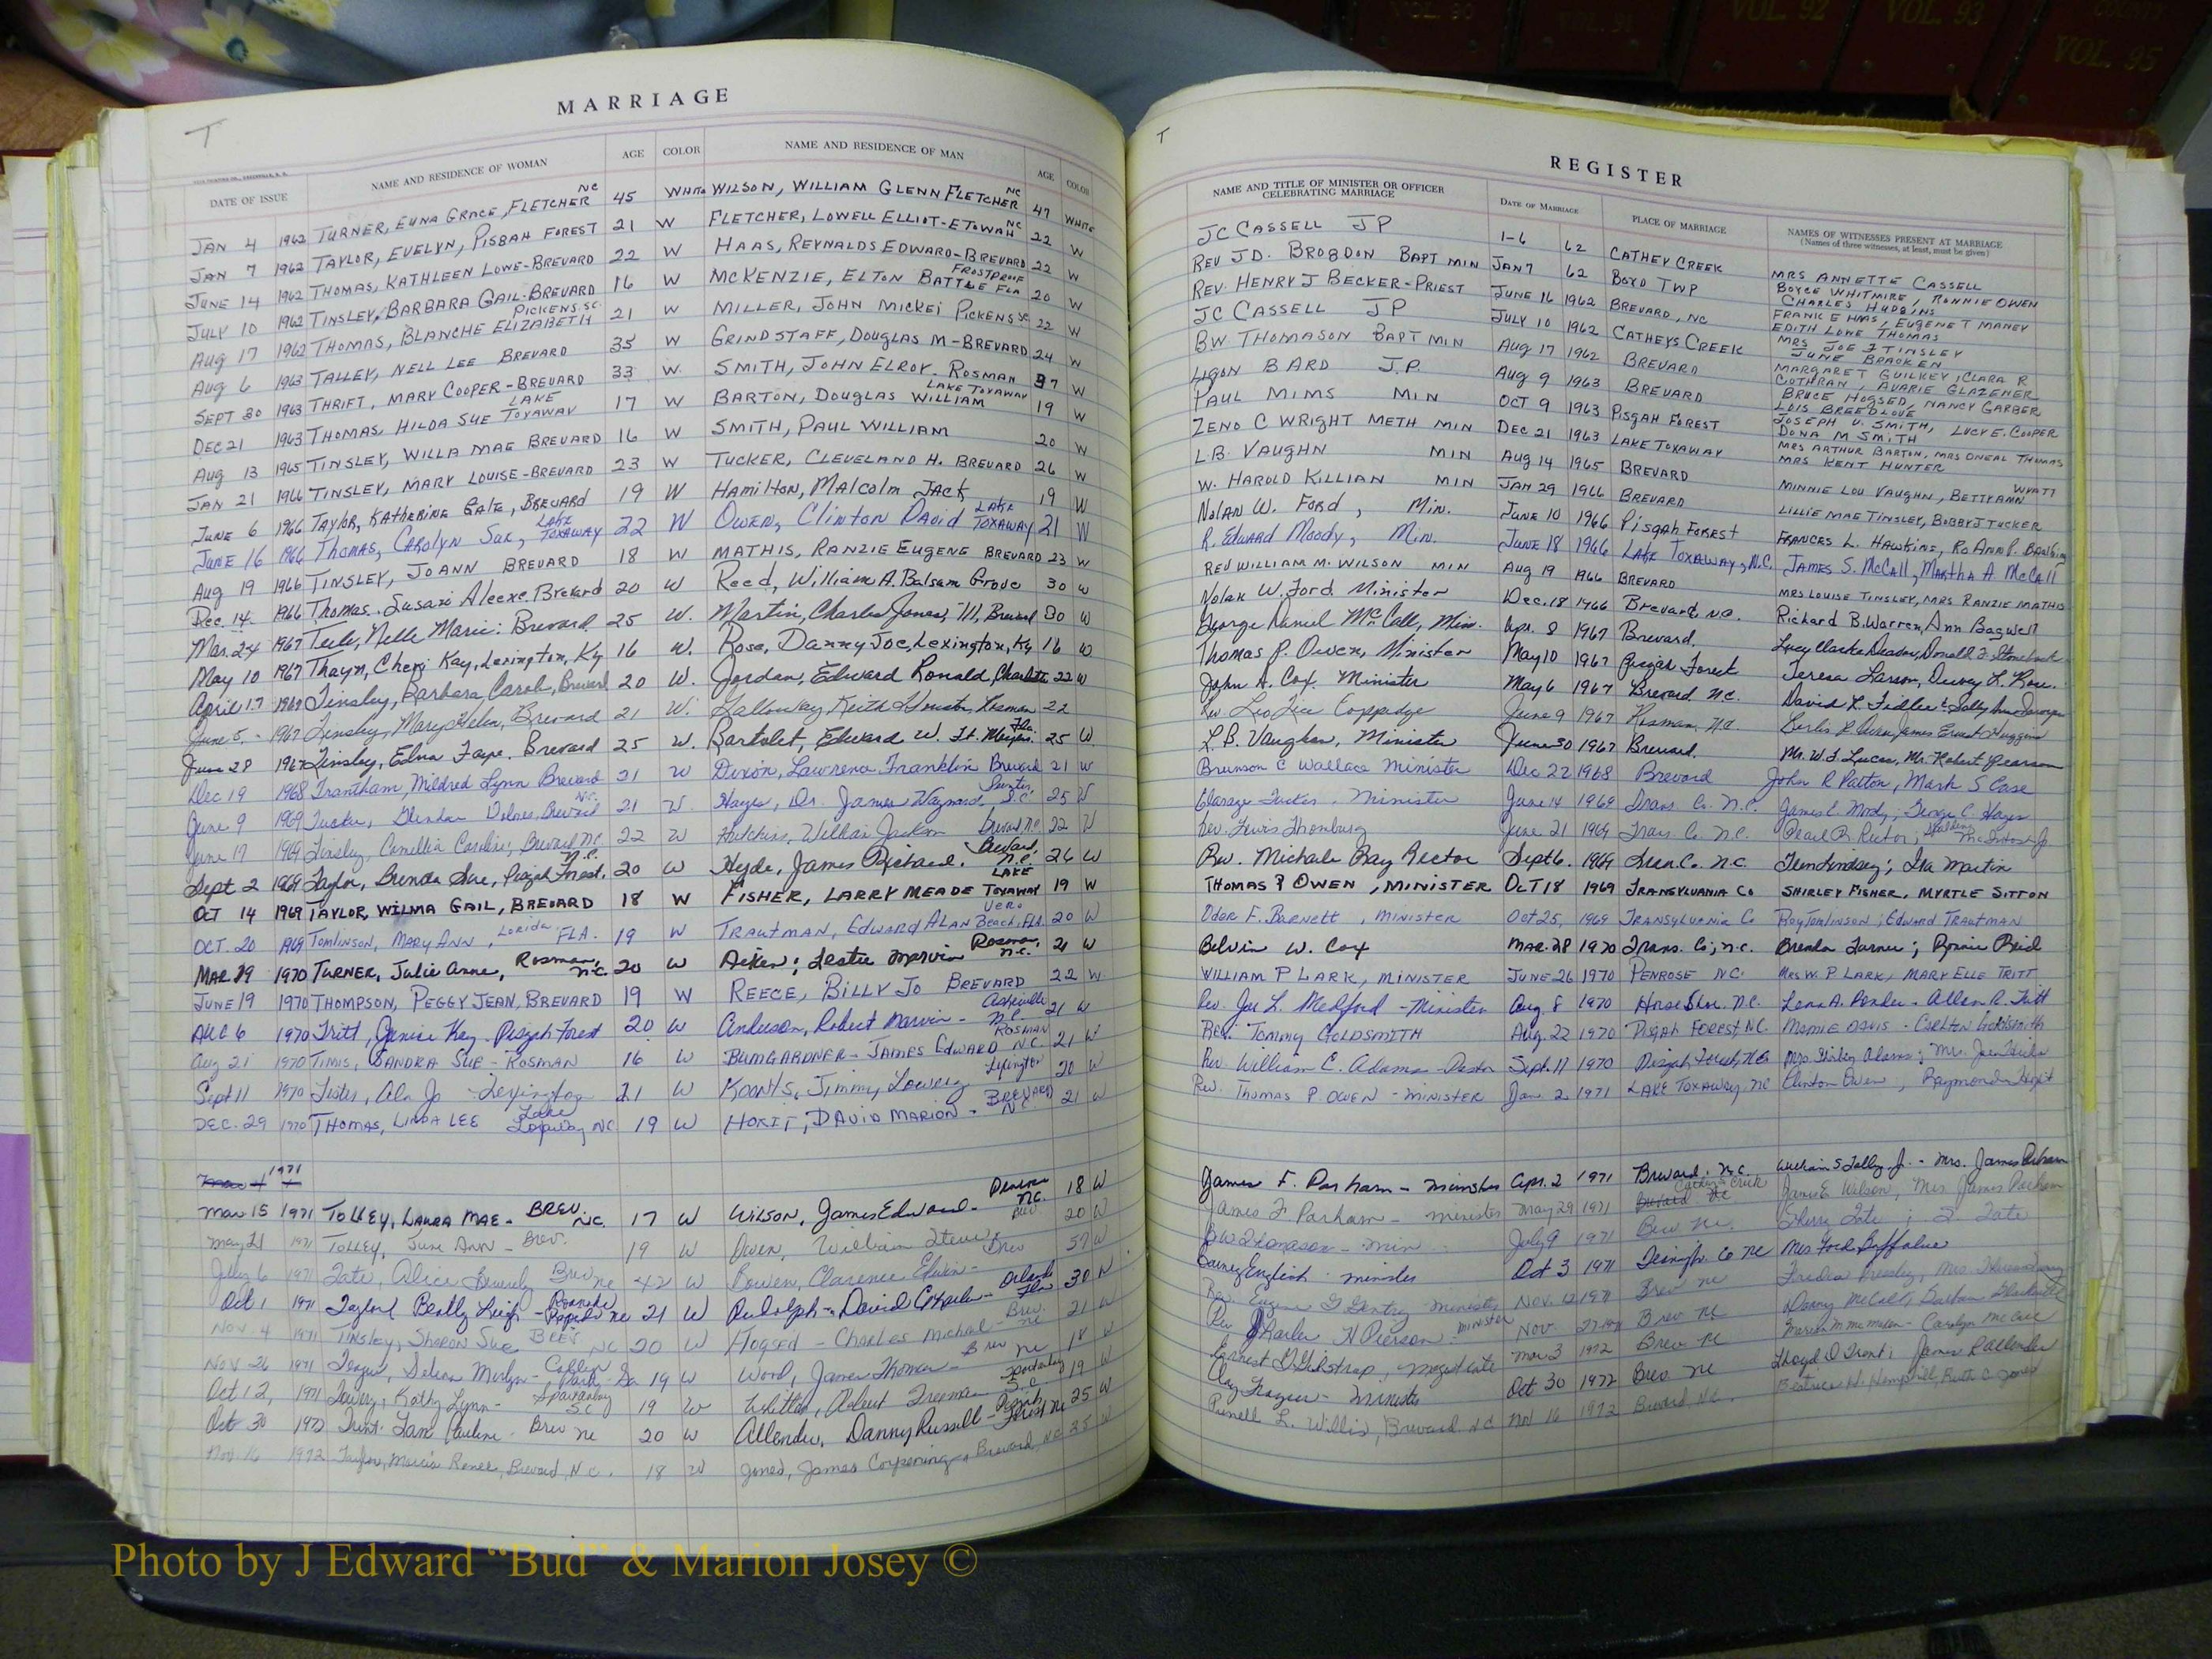 VOL. 90
VOL. 91
VOL. 92
VOL. 93
VOL. 95
MARRIAGE
T
DATE OF ISSUE NAME AND RESIDENCE OF WOMAN AGE COLOR NAME AND RESIDENCE OF MAN AGE COLOR
JAN 4 1962 TURNER, EUNA GRACE, FLETCHER NC 45 WHITE WILSON, WILLIAM GLENN FLETCHER NC 47 WHITE
JAN 7 1962 TAYLOR, EVELYN, PISGAH FOREST 21 W FLETCHER, LOWELL ELLIOT-ETOWAH NC 22 W
JUNE 14 1962 THOMAS, KATHLEEN LOWE-BREVARD 22 W HAAS, REYNALDS EDWARD-BREVARD 22 W
JULY 10 1962 TINSLEY, BARBARA GAIL-BREVARD 16 W MCKENZIE, ELTON BATTLE FROSTPROOF FLA 20 W
AUG 17 1962 THOMAS, BLANCHE ELIZABETH PICKENS, SC 21 W MILLER, JOHN MICKEI PICKENS SC 22 W
AUG 6 1963 TALLEY, NELL LEE BREVARD 35 W GRINDSTAFF, DOUGLAS M-BREVARD 24 W
SEPT 30 1963 THRIFT, MARY COOPER-BREVARD 33 W. SMITH, JOHN ELROY. ROSMAN 37 W
DEC 21 1963 THOMAS, HILDA SUE LAKE TOXAWAY 17 W BARTON, DOUGLAS WILLIAM LAKE TOXAWAY 19 W
AUG 13 1965 TINSLEY, WILLA MAE BREVARD 16 W SMITH, PAUL WILLIAM 20 W
JAN 21 1966 TINSLEY, MARY LOUISE-BREVARD 23 W TUCKER, CLEVELAND H. BREVARD 26 W
JUNE 6 1966 TAYLOR, KATHERINE GALE, BREVARD 19 W HAMILTON, MALCOLM JACK 19 W
JUNE 16 1966 THOMAS, CAROLYN SUE, LAKE TOXAWAY 22 W OWEN, CLINTON DAVID LAKE TOXAWAY 21 W
AUG 19 1966 TINSLEY, JOANN BREVARD 18 W MATHIS, RANZIE EUGENE BREVARD 23 W
Dec. 14 1966 Thomas, Susan Aleene Brevard 20 W Reed, William A. Balsam Grove 30 W
Mar. 24 1967 Nelle Marie: Brevard 25 W. Martin, Charles Jones, III, Brevard 30 W
May 10 1967 Kay, Lexington, Ky 16 W. Rose, Danny Joe, Lexington, Ky 16 W
April 17 Tinsley, Barbara Carole, Brevard 20 W. Jordan, Edward Ronald, Charlotte 22 W
June 5 1967 Tinsley, Mary Helen, Brevard 21 W. Galloway, Keith Rosman 22
June 28 1967 Tinsley, Edna Faye. Brevard 25 W. Edward W. Ft. Myers Fla. 25 W.
Dec 19 1968 Trantham, Mildred Lynn Brevard 21 W Dixon, Lawrence Franklin Brevard 21 W
June 9 1969 Tucker, Glenda Brevard N.C. 21 W. Hayes, Dr. James Sumter, S.C. 25 W
June 17 1969 Tinsley, Camellia Caroline, Brevard N.C. 22 W Jackson Brevard N.C. 22 W
Sept 2 1969 Taylor, Brenda Sue, Pisgah Forest, N.C. 20 W Hyde, James Richard, Brevard, N.C. 26 W
OCT 14 1969 TAYLOR, WILMA GAIL, BREVARD 18 W FISHER, LARRY MEADE LAKE TOXAWAY 19 W
OCT. 20 1969 TOMLINSON, MARY ANN, FLA. 19 W TRAUTMAN, EDWARD ALAN VERO BEACH, FLA. 20 W
MAR 19 1970 TURNER, Julie Anne, Rosman, N.C. 20 W Aiken; Leslie Marvin Rosman, N.C. 21 W
JUNE 19 1970 THOMPSON, PEGGY JEAN, BREVARD 19 W REECE, BILLY JO BREVARD 22 W
AUG 6 1970 Tritt, Janice Kay - Pisgah Forest 20 W Anderson, Robert Marvin - Asheville N.C. 21 W
Aug 21 1970 TIMIS, SANDRA SUE - ROSMAN 16 W BUMGARDNER - JAMES EDWARD ROSMAN N.C. 21 W
Sept 11 1970 Lexington 21 W KOONTS, Jimmy Lexington 20 W
DEC. 29 1970 THOMAS, LINDA LEE Lake Toxaway, NC 19 W HOXIT, DAVID MARION - BREVARD N.C. 21 W
1971
Mar 15 1971 TOLLEY, LAURA MAE - BREV. N.C. 17 W WILSON, James Edward - Penrose N.C. 18 W
May 21 1971 TOLLEY, June Ann - Brev. 19 W Owen, William Brev 20 W
July 6 1971 Tate, Alice Beverly Brev NC 42 W Bowen, Clarence Edwin - Brev 57 W
Oct 1 1971 Taylor, NC 21 W Rudolph - David Charles - Orlando Fla 30 W
Nov. 4 1971 TINSLEY, SHARON SUE BREV NC 20 W Hogsed - Charles Michael - Brev. NC 21 W
Nov 26 1971 19 W Wood, James Thomas - Brev NC 18 W
Oct 12, 1971 Kathy Lynn - Spartanburg SC 19 W Robert Freeman S.C. 19 W
Oct 30 1972 Trent - Pauline - Brev NC 20 W Allender, Danny Russell - Pisgah Forest NC 25 W
Nov 16 1972 Taylor, Marcia Renee, Brevard, N.C. 18 W Jones, James Corpening, Brevard, NC 25 W
T
REGISTER
NAME AND TITLE OF MINISTER OR OFFICER CELEBRATING MARRIAGE DATE OF MARRIAGE PLACE OF MARRIAGE NAMES OF WITNESSES PRESENT AT MARRIAGE
(Names of three witnesses, at least, must be given)
JC CASSELL JP 1-6 62 CATHEY CREEK MRS ANNETTE CASSELL
REV J.D. BROGDON BAPT MIN JAN 7 62 BOYD TWP BOYCE WHITMIRE, RONNIE OWEN CHARLES HUDGINS
REV. HENRY J BECKER-PRIEST JUNE 16 1962 BREVARD, NC FRANK E HAAS, EUGENE T MANEY EDITH LOWE THOMAS
JC CASSELL JP JULY 10 1962 CATHEYS CREEK MRS JOE F TINSLEY JUNE BRACKEN
B.W. THOMASON BAPT MIN AUG 17 1962 BREVARD MARGARET GUILKEY, CLARA R COTHRAN, AVARIE GLAZENER
LIGON BARD J.P. AUG 9 1963 BREVARD BRUCE HOGSED, NANCY GARBER LOIS BREEDLOVE
PAUL MIMS MIN OCT 9 1963 PISGAH FOREST JOSEPH U. SMITH, LUCY E. COOPER DONA M SMITH
ZENO C WRIGHT METH MIN DEC 21 1963 LAKE TOXAWAY MRS ARTHUR BARTON, MRS ONEAL THOMAS MRS KENT HUNTER
L.B. VAUGHN MIN AUG 14 1965 BREVARD MINNIE LOU VAUGHN, BETTY ANN WYATT
W. HAROLD KILLIAN MIN JAN 29 1966 BREVARD LILLIE MAE TINSLEY, BOBBY J TUCKER
NOLAN W. FORD, MIN. JUNE 10 1966 PISGAH FOREST FRANCES L. HAWKINS, RO ANN P.
R. EDWARD MOODY, MIN. JUNE 18 1966 LAKE TOXAWAY, N.C. JAMES S. McCALL, MARTHA A. McCALL
REV WILLIAM M. WILSON MIN AUG 19 1966 BREVARD MRS LOUISE TINSLEY, MRS RANZIE MATHIS
Nolan W. Ford Minister Dec. 18 1966 Brevard, N.C. Richard B. Warren, Ann Bagwell
George Daniel McCall, Min. Apr. 8 1967 Brevard. Lucy Clarke Deaver, Donald F.
Thomas P. Owen, Minister May 10 1967 Pisgah Forest Teresa Larson, Dewey L. Rose.
John A. Cox Minister May 6 1967 Brevard N.C. David L. Fidler & Sally Ann
Rev June 9 1967 Rosman, N.C. James Ernest
L.B. Vaughn, Minister June 30 1967 Brevard. Mr. W.F. Lucas, Mr. Robert Pearson
Brunson C Wallace Minister Dec 22 1968 Brevard John R Patton, Mark S Case
Tucker, Minister June 14 1969 Trans. Co. N.C. James E. George C. Hayes
Rev. Lewis Thornburg June 21 1969 Trans. Co N.C. Pearl B. Rector,
Rev. Michale Ray Rector Sept 6. 1969 Tran. Co. N.C. Ila Martin
THOMAS P OWEN, MINISTER OCT 18 1969 TRANSYLVANIA CO SHIRLEY FISHER, MYRTLE SITTON
Oder F. Barnett, MINISTER Oct 25, 1969 TRANSYLVANIA Co Roy TOMLINSON; Edward TRAUTMAN
Belvin W. Cox MAR. 28 1970 Trans. Co; N.C. Brenda Turner; Ronnie Reid
WILLIAM P LARK, MINISTER JUNE 26 1970 PENROSE N.C. MRS W. P. LARK, MARY ELLE TRITT
Rev. Joe L. Medford - Minister Aug 8 1970 Horse Shoe, N.C. Lena A. Allen R. Tritt
REV. TOMMY GOLDSMITH AUG. 22 1970 PISGAH FOREST, NC. MAMIE DAVIS - CARLTON GOLDSMITH
Rev. William C. Adams - Pastor Sept. 11 1970 Pisgah Forest, NC Mrs. Shirley Adams; Mr. Joe
Rev. THOMAS P. OWEN - MINISTER Jan 2, 1971 LAKE TOXAWAY, NC Clinton Owen, Raymond Hoxit
James F. Parham - minister Apr. 2 1971 Brevard, N.C. William S Tolley Jr. - Mrs. James Parham
James F Parham - minister May 29 1971 Cathey's Creek James E. Wilson, Mrs James Parham
BW Thomason - min July 9 1971 Brev NC. Sherry Tate;
English minister Oct 3 1971 Co NC Mrs Ford
Rev. Eugene G Gentry - minister Nov. 12 1971 Brev NC
Rev Charles H Pierson - minister Nov. 27 1971 Brev NC Danny McCall, Barbara
Earnest G Gilstrap, Magistrate Mar 3 1972 Brev NC Carolyn McCall
Clay minister Oct 30 1972 Brev NC Lloyd D Trent; James Callender
Pernell L. Willis, Brevard NC Nov 16 1972 Brevard NC. Beatrice H. Hemphill, Ruth C Jones
Photo by J Edward “Bud” & Marion Josey ©